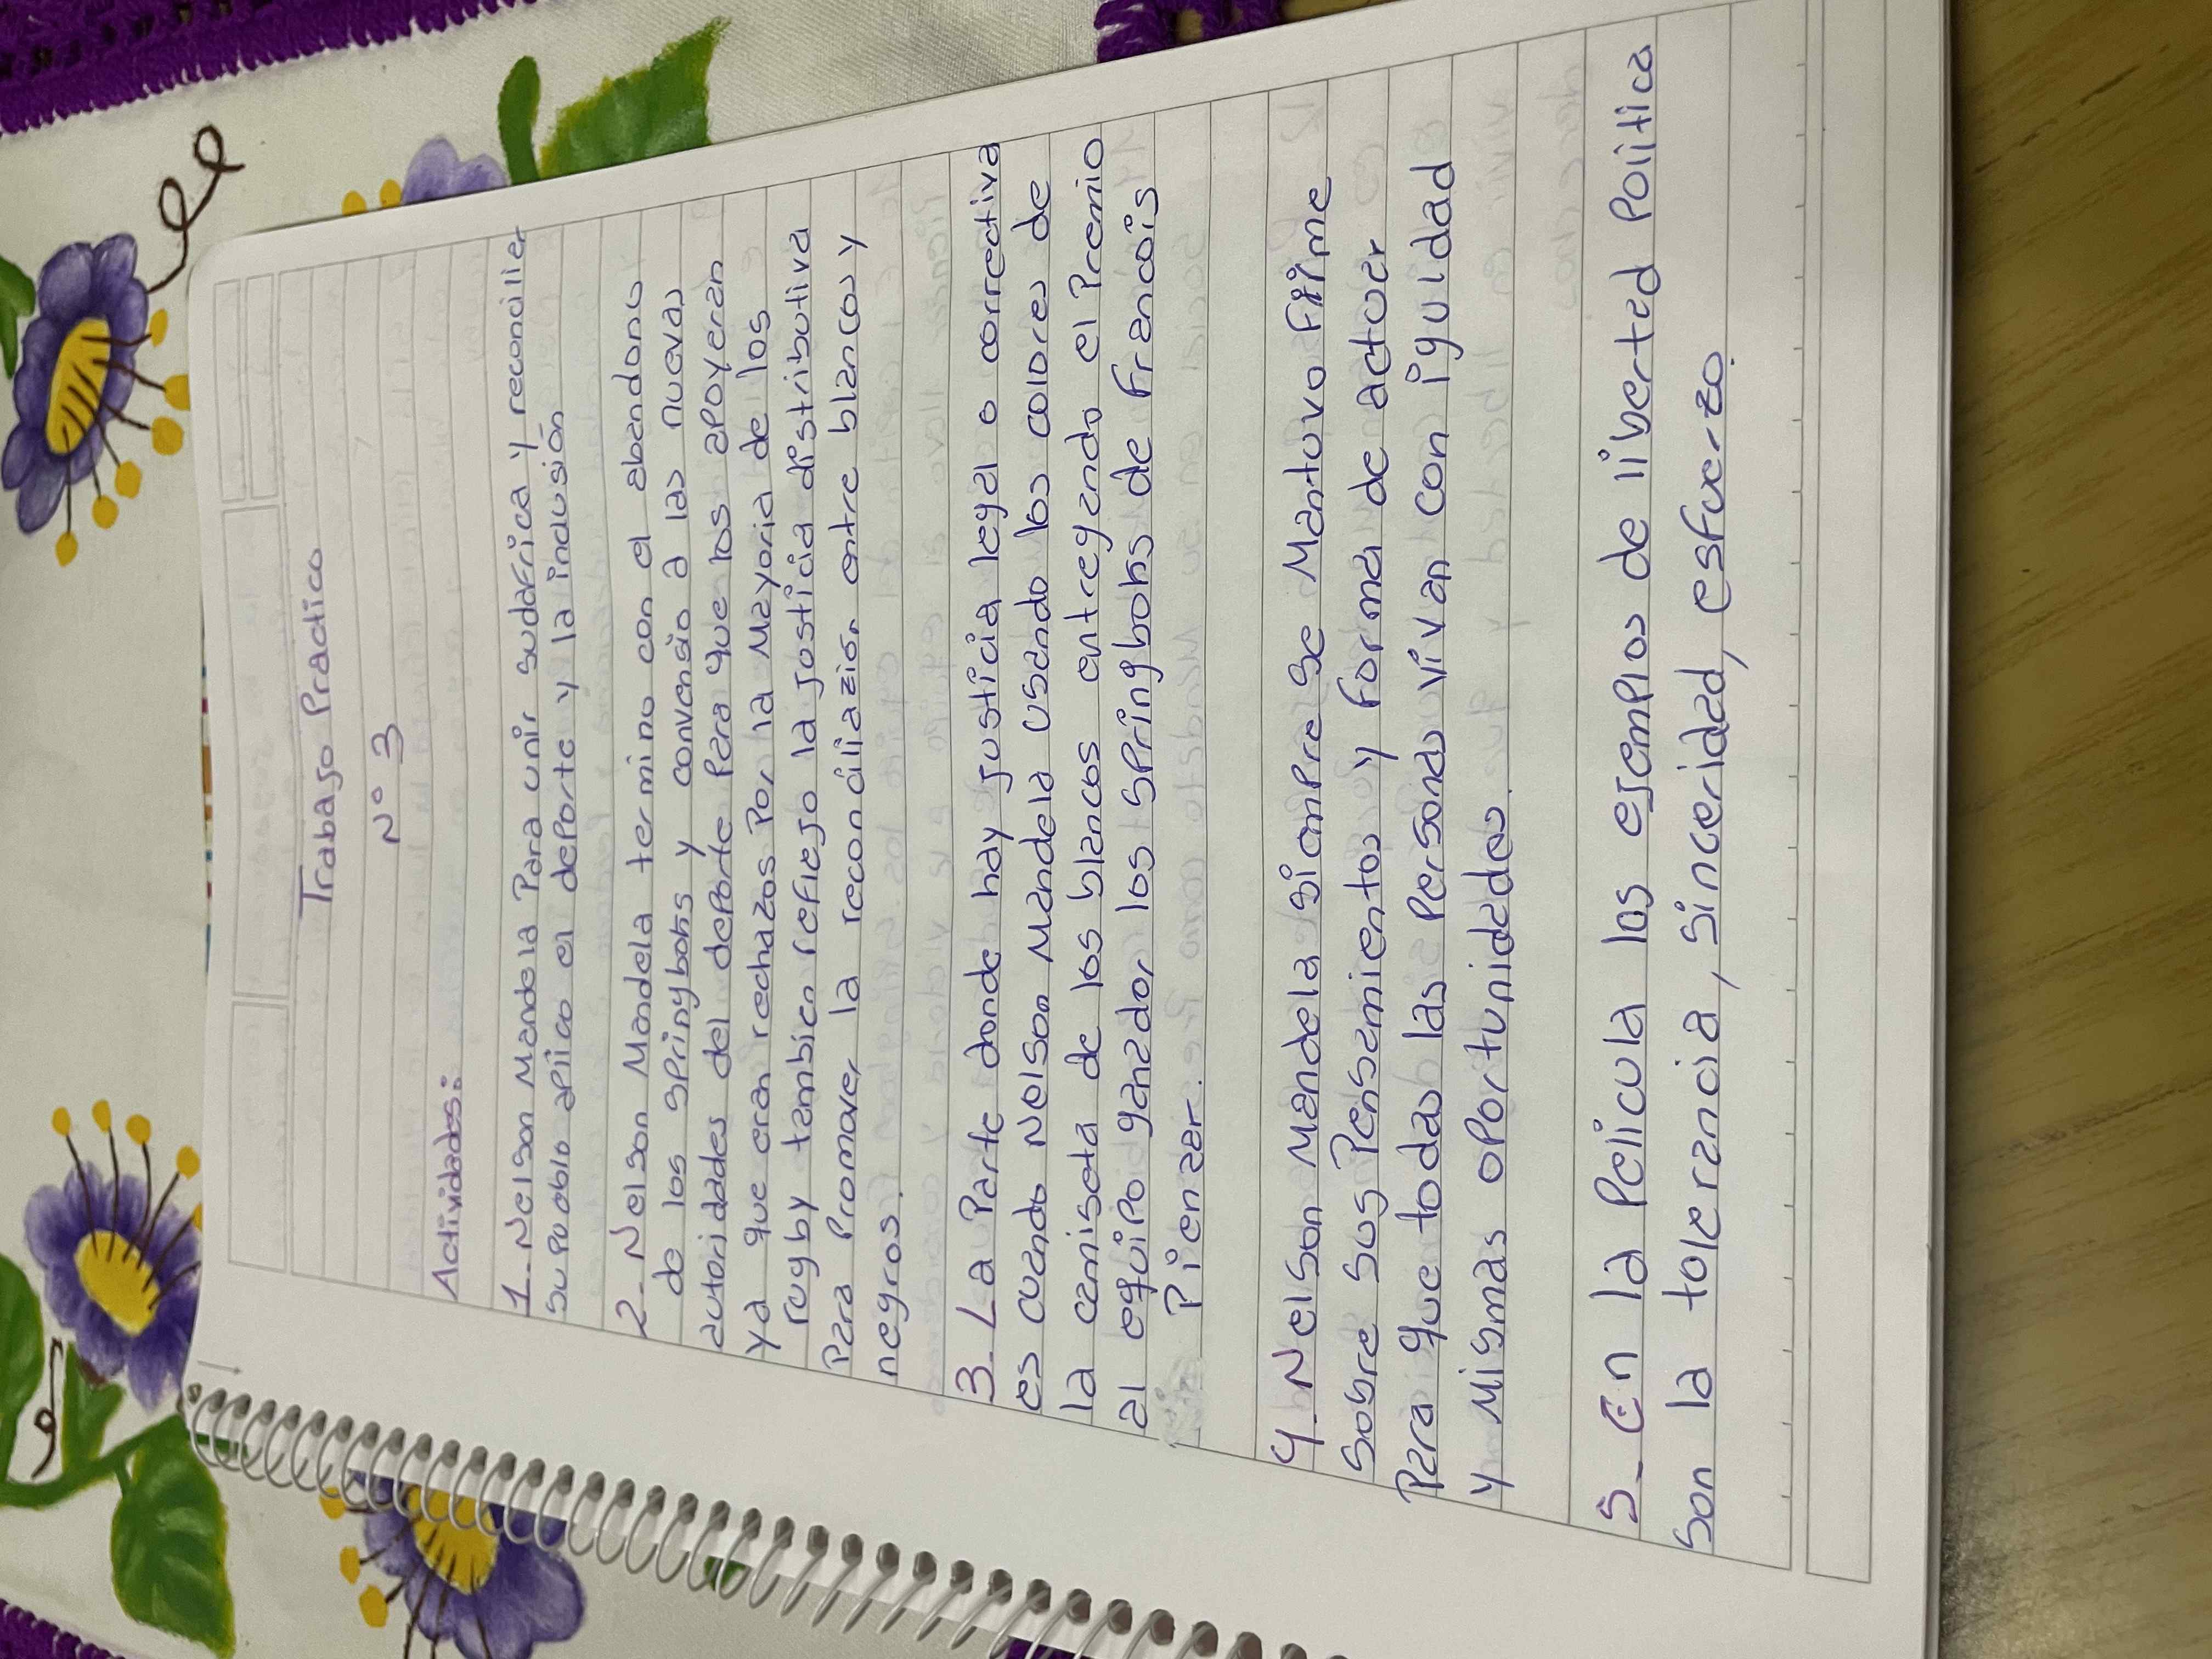 Trabajo Practico
N° 3
Actividades:
1_ Nelson Mandela Para unir sudafrica y reconciliar
su pueblo aplico el deporte y la inclusión
2_ Nelson Mandela termino con el abandono
de los springboks y convensio a las nuevas
autoridades del deporte Para que los apoyeran
ya que eran rechazos Por la Mayoria de los
rugby tambien reflejo la justicia distributiva
Para Promover la reconciliazion entre blancos y
negros.
3_ La Parte donde hay justicia legal o correctiva
es cuando Nelson Mandela usando los colores de
la camiseta de los blancos entregando el Premio
al equipo ganador los springboks de Francois
Pienzar.
4_ Nelson Mandela siempre se Mantuvo firme
sobre sus Pensamientos y forma de actuar
Para que todas las Personas vivan con iguldad
y Mismas oportunidades.
5_ En la Pelicula los ejemplos de libertad Politica
son la tolerancia, sinceridad, esfuerzo.